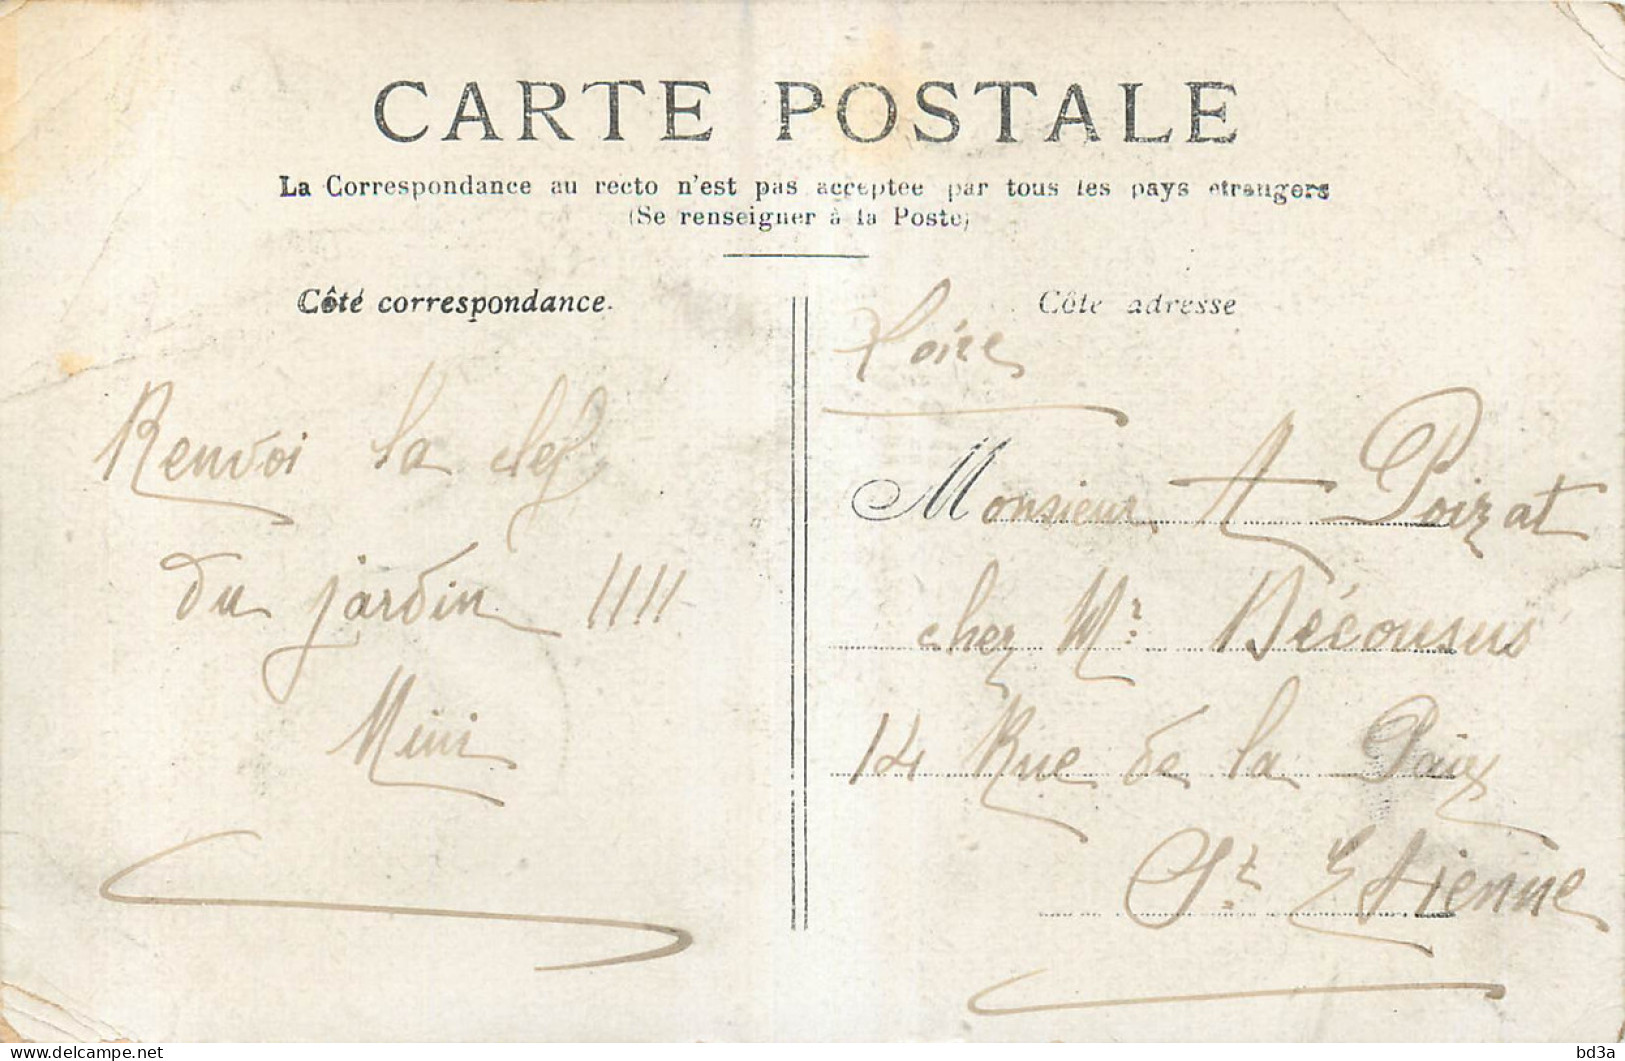 CARTE POSTALE
La Correspondance au recto n'est pas acceptée par tous les pays étrangers
(Se renseigner à la Poste)
Côté correspondance.
Renvoi la clef
du jardin !!!!
Mimi
Côté adresse
Loire
Monsieur A Poizat
chez Mr Décousus
14 Rue de la Paix
St Etienne
bd3a